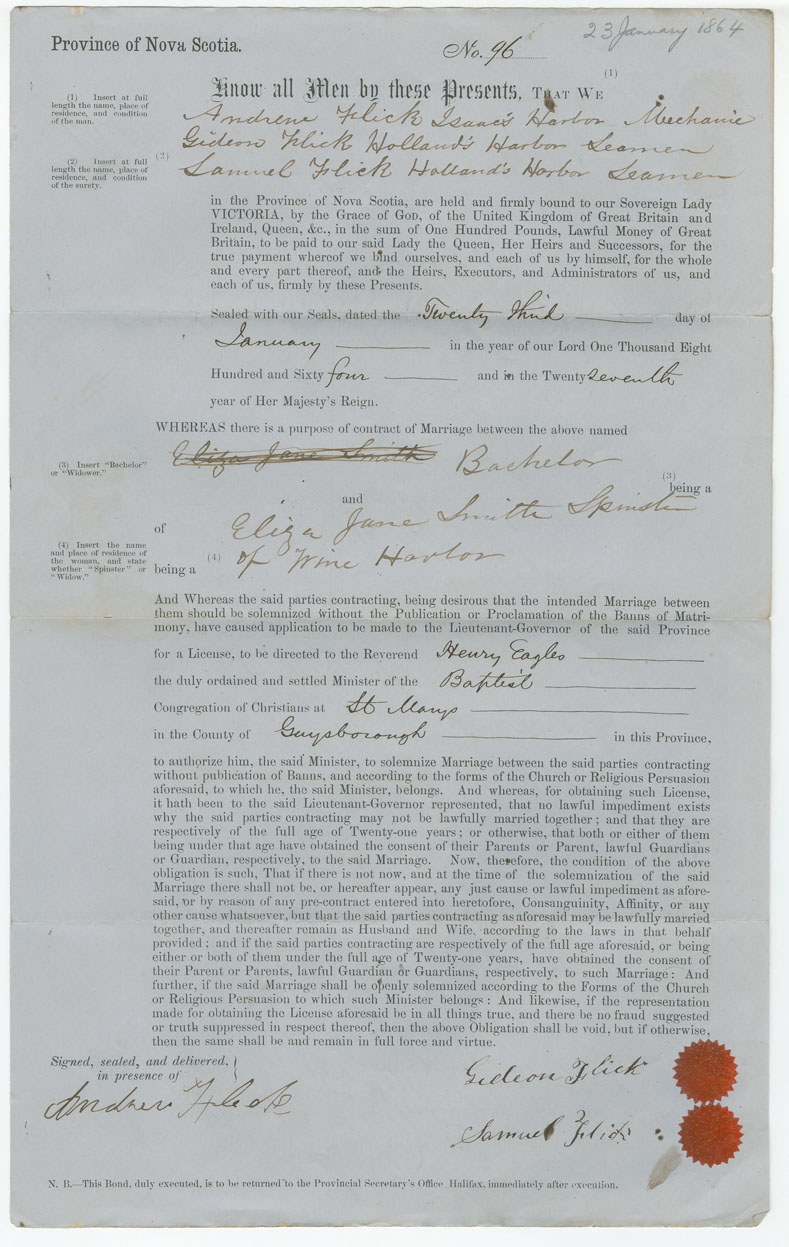 23 January 1864
Province of Nova Scotia.
No. 96
(1)
Know all Men by these Presents, THAT WE
(1) Insert at full
length the name, place of
residence, and condition
of the man.
Andrew Flick Isaac's Harbor Mechanic
Gideon Flick Holland's Harbor Seamen
(2) Insert at full
length the name, place of
residence, and condition
of the surety.
(2)
Samuel Flick Holland's Harbor Seamen
in the Province of Nova Scotia, are held and firmly bound to our Sovereign Lady
VICTORIA, by the Grace of GOD, of the United Kingdom of Great Britain and
Ireland, Queen, &c., in the sum of One Hundred Pounds, Lawful Money of Great
Britain, to be paid to our said Lady the Queen, Her Heirs and Successors, for the
true payment whereof we bind ourselves, and each of us by himself, for the whole
and every part thereof, and the Heirs, Executors, and Administrators of us, and
each of us, firmly by these Presents.
Sealed with our Seals, dated the Twenty third day of
January in the year of our Lord One Thousand Eight
Hundred and Sixty four and in the Twenty seventh
year of Her Majesty's Reign.
WHEREAS there is a purpose of contract of Marriage between the above named
Eliza Jane Smith Bachelor
(3) Insert "Bachelor"
or "Widower."
(3)
being a
and
of Eliza Jane Smith Spinster
(4) Insert the name
and place of residence of
the woman, and state
whether "Spinster" or
"Widow."
being a (4) of Wine Harbor
And Whereas the said parties contracting, being desirous that the intended Marriage between
them should be solemnized without the Publication or Proclamation of the Banns of Matri-
mony, have caused application to be made to the Lieutenant-Governor of the said Province
for a License, to be directed to the Reverend Henry Eagles
the duly ordained and settled Minister of the Baptist
Congregation of Christians at St Marys
in the County of Guysborough in this Province,
to authorize him, the said Minister, to solemnize Marriage between the said parties contracting
without publication of Banns, and according to the forms of the Church or Religious Persuasion
aforesaid, to which he, the said Minister, belongs. And whereas, for obtaining such License,
it hath been to the said Lieutenant-Governor represented, that no lawful impediment exists
why the said parties contracting may not be lawfully married together; and that they are
respectively of the full age of Twenty-one years; or otherwise, that both or either of them
being under that age have obtained the consent of their Parents or Parent, lawful Guardians
or Guardian, respectively, to the said Marriage. Now, therefore, the condition of the above
obligation is such, That if there is not now, and at the time of the solemnization of the said
Marriage there shall not be, or hereafter appear, any just cause or lawful impediment as afore-
said, or by reason of any pre-contract entered into heretofore, Consanguinity, Affinity, or any
other cause whatsoever, but that the said parties contracting as aforesaid may be lawfully married
together, and thereafter remain as Husband and Wife, according to the laws in that behalf
provided; and if the said parties contracting are respectively of the full age aforesaid, or being
either or both of them under the full age of Twenty-one years, have obtained the consent of
their Parent or Parents, lawful Guardian or Guardians, respectively, to such Marriage: And
further, if the said Marriage shall be openly solemnized according to the Forms of the Church
or Religious Persuasion to which such Minister belongs: And likewise, if the representation
made for obtaining the License aforesaid be in all things true, and there be no fraud suggested
or truth suppressed in respect thereof, then the above Obligation shall be void, but if otherwise,
then the same shall be and remain in full force and virtue.
Signed, sealed, and delivered,
in presence of
Gideon Flick
Andrew Flick
Samuel Flick
N. B.—This Bond, duly executed, is to be returned to the Provincial Secretary's Office Halifax, immediately after execution.